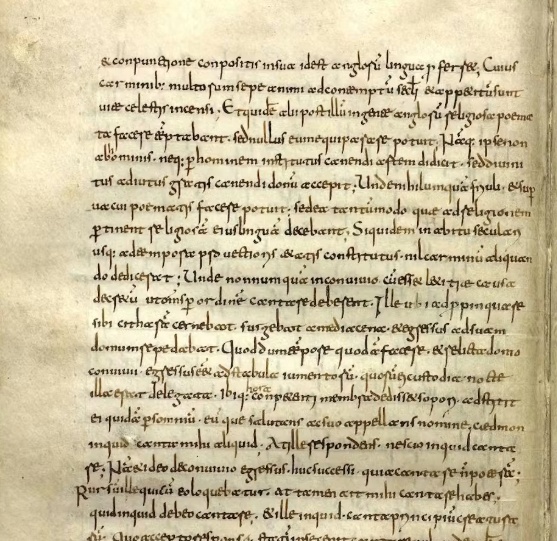 & conpunctione conpositis in sua id est anglorū lingua pferret, Cuius
carminib; multorum sepe animi ad contemptū scli & appetitum sunt
vitae celestis incensi. Et quidē alii post illū in gente anglorū religiosa poema
ta facere teptabant. sed nullus eum equiparare potuit, Nāq; ipse non
ab hominib; neq; p hominem institutus canendi artem didicit. sed divini
tus adiutus gratis canendi donū accepit; Unde nihil umquā frivoli. & sup
vacui poematis facere potuit. sed ea tantūmodo quae ad religionem
ptinent religiosā eius linguā decebant; Siquidem in abitu seculari
usq; ad tempora pvectioris aetatis constitutus. nil carminū aliquan
do dedicerat; Unde nonnumquā in convivio cū esset letitiae causa
decretū ut omnes p ordinē cantare deberent. Ille ubi adppinquare
sibi citharā cernebat. surgebat a media cena. & egressus ad suam
domum repedabat. Quod dum tēpore quodā faceret. & relicta domo
convivii. egressus eēt ad stabula iumentorū. quorū ei custodia nocte
illa erat delegata. Ibiq; hora conpetenti membra dedisset sopori. adstitit
ei quidā p somniū. eū que salutans ac suo appellans nomine, cedmon
inquid canta mihi aliquid. At ille respondens. nescio inquid canta
re; Nā & ideo de convivio egressus. huc successi. quia cantare n poterā;
Rursū ille qui cū eo loquebatur. at tamen ait mihi cantare habes;
quid inquid debeo cantare. & ille inquid. canta principiū creaturae
rū. Quo accepto responso. statī